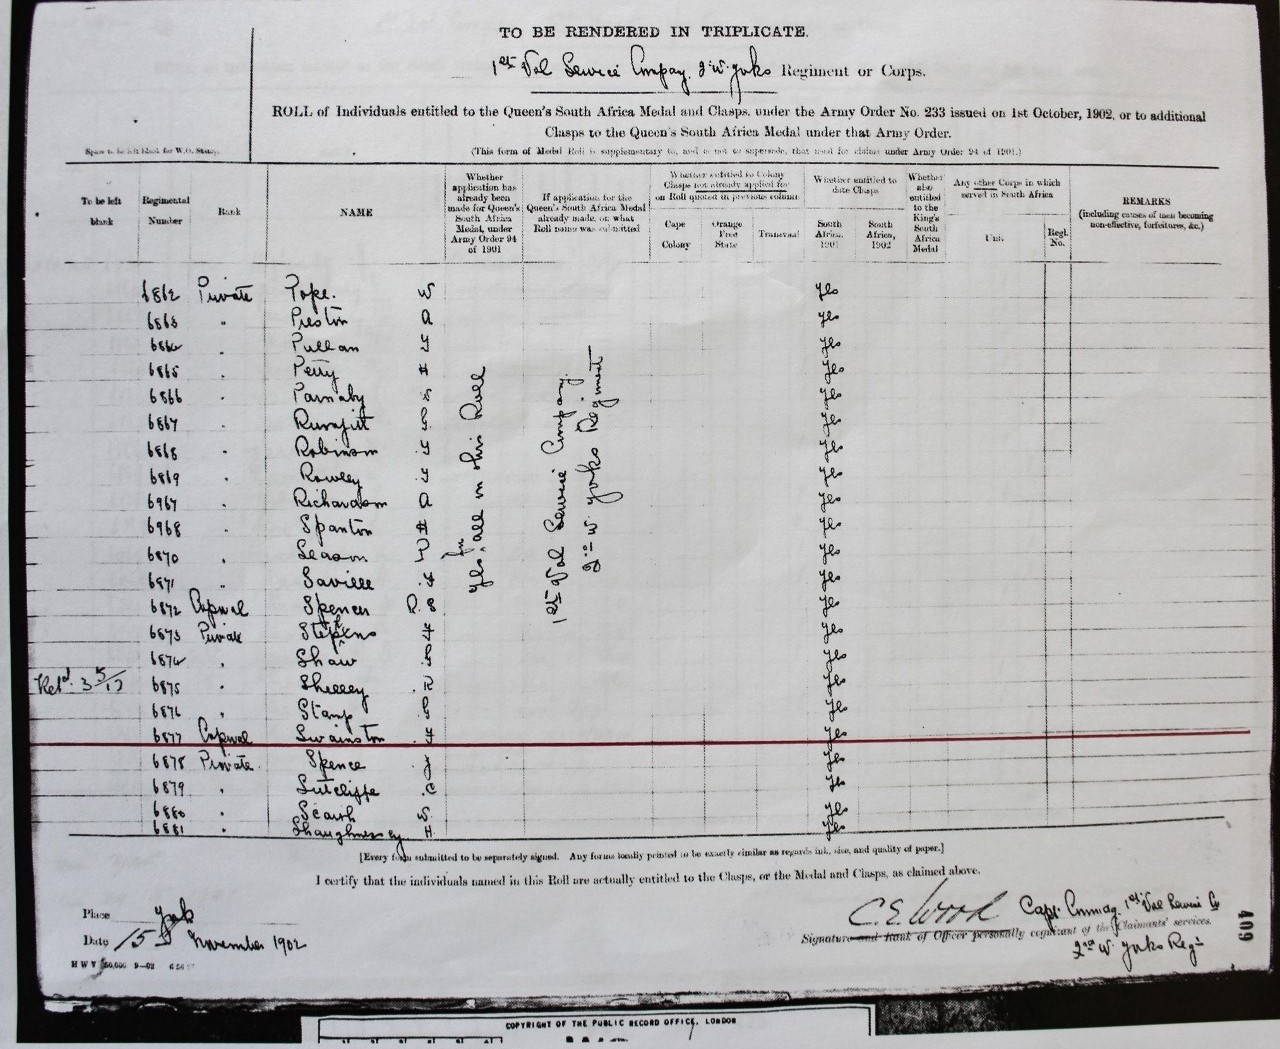 TO BE RENDERED IN TRIPLICATE.
1st Vol Service Company, 2 W. Yorks Regiment or Corps.
ROLL of Individuals entitled to the Queen's South Africa Medal and Clasps, under the Army Order No. 233 issued on 1st October, 1902, or to additional
Clasps to the Queen's South Africa Medal under that Army Order.
(This form of Medal Roll is supplementary to, and is not to supersede, that used for claims under Army Order 94 of 1901.)
Space to be left blank for W.O. Stamp.
To be left blank
Regimental Number
Rank
NAME
Whether application has already been made for Queen's South Africa Medal, under Army Order 94 of 1901
If application for the Queen's South Africa Medal already made, on what Roll name was submitted
Whether entitled to Colony Clasps not already applied for on Roll quoted in previous column
Cape Colony
Orange Free State
Transvaal
Whether entitled to date Clasps
South Africa, 1901
South Africa, 1902
Whether also entitled to the King's South Africa Medal
Any other Corps in which served in South Africa
Unit.
Regl. No.
REMARKS
(including causes of men becoming non-effective, forfeitures, &c.)
6862 Private Pope. W yes
6863 " Preston A yes
6864 " Pullan yes
6865 " Perry H yes
6866 " Parnaby yes
6867 " yes
6868 " Robinson yes
6869 " Rowley yes
6967 " Richardson A yes
6968 " Spanton H yes
6870 " Season yes
6871 " Saville yes
6872 Corporal Spencer R. S yes
6873 Private Stephens yes
6874 " Shaw yes
Retd. 3/5/17 6875 " Shelley R yes
6876 " Stamp yes
6877 Corporal Swainston yes
6878 Private Spence J yes
6879 " Sutcliffe C yes
6880 " W. yes
6881 " Shaughnessy H yes
yes for all on this Roll
1st Vol Service Company.
2nd W. Yorks Regiment
[Every form submitted to be separately signed. Any forms locally printed to be exactly similar as regards ink, size, and quality of paper.]
I certify that the individuals named in this Roll are actually entitled to the Clasps, or the Medal and Clasps, as claimed above.
Place York
Date 15 November 1902
C.E. Wood Capt. Commdg. 1st Vol Service Co
Signature and Rank of Officer personally cognizant of the Claimants' services.
2nd W. Yorks Regt
409
H W V 50,000 9—02
COPYRIGHT OF THE PUBLIC RECORD OFFICE, LONDON